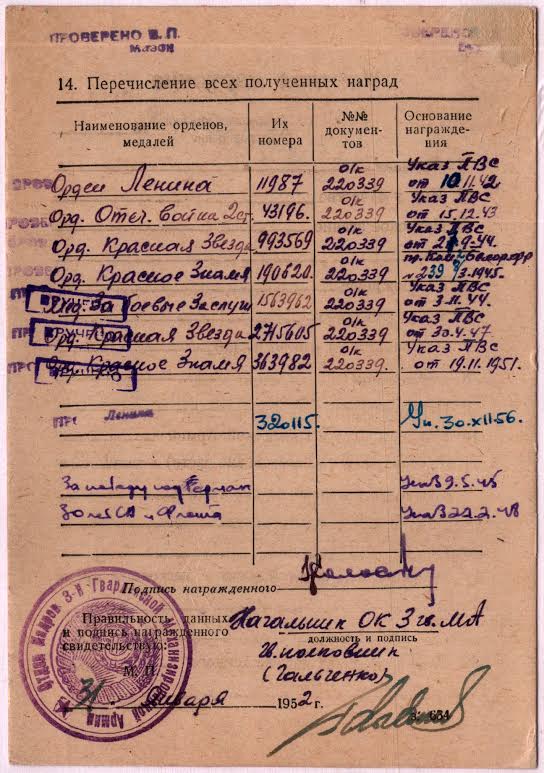 ПРОВЕРЕНО В. П.
14. Перечисление всех полученных наград
Наименование орденов, медалей Их номера №№ документов Основание награждения
Орден Ленина 11987 о/к 220339 Указ ПВС от 10.11.42
Орд. Отеч. Война 2 ст. 43196. о/к 220339 Указ ПВС от 15.12.43
Орд. Красная Звезда 993569 о/к 220339 Указ ПВС
Орд. Красное Знамя 190620. о/к 220339 3.1945.
Боевые Заслуги 1563962 о/к 220339 Указ ПВС от 3.11.44.
Орд. Красная Звезда 2715605 о/к 220339 Указ ПВС от 30.4.47
Орд. Красное Знамя 363982 о/к 220339. Указ ПВС от 19.11.1951.
Ленина 320115. Ук. 30.XII-56.
За победу над Герман 9.5.45
30 лет СА и Флота 22.2.48
Подпись награжденного
Правильность данных и подпись награжденного свидетельствую:
Начальник ОК 3 гв. МА
должность и подпись
Гв. полковник
(Гальченко)
М. П.
31 января 1952 г.
Отдел кадров 3-й Гвардейской Механизированной Армии
З. 654